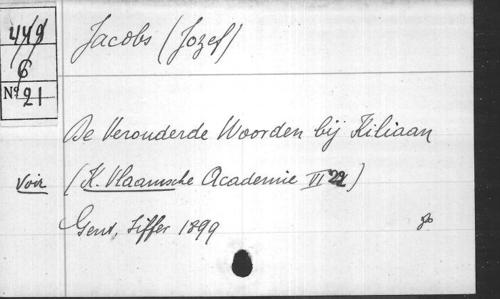 449
6
No 21
Jacobs (Jozef)
De Verouderde Woorden bij Kiliaan
Voir (K. Vlaamsche Academie VI 22)
Gent, Siffer 1899